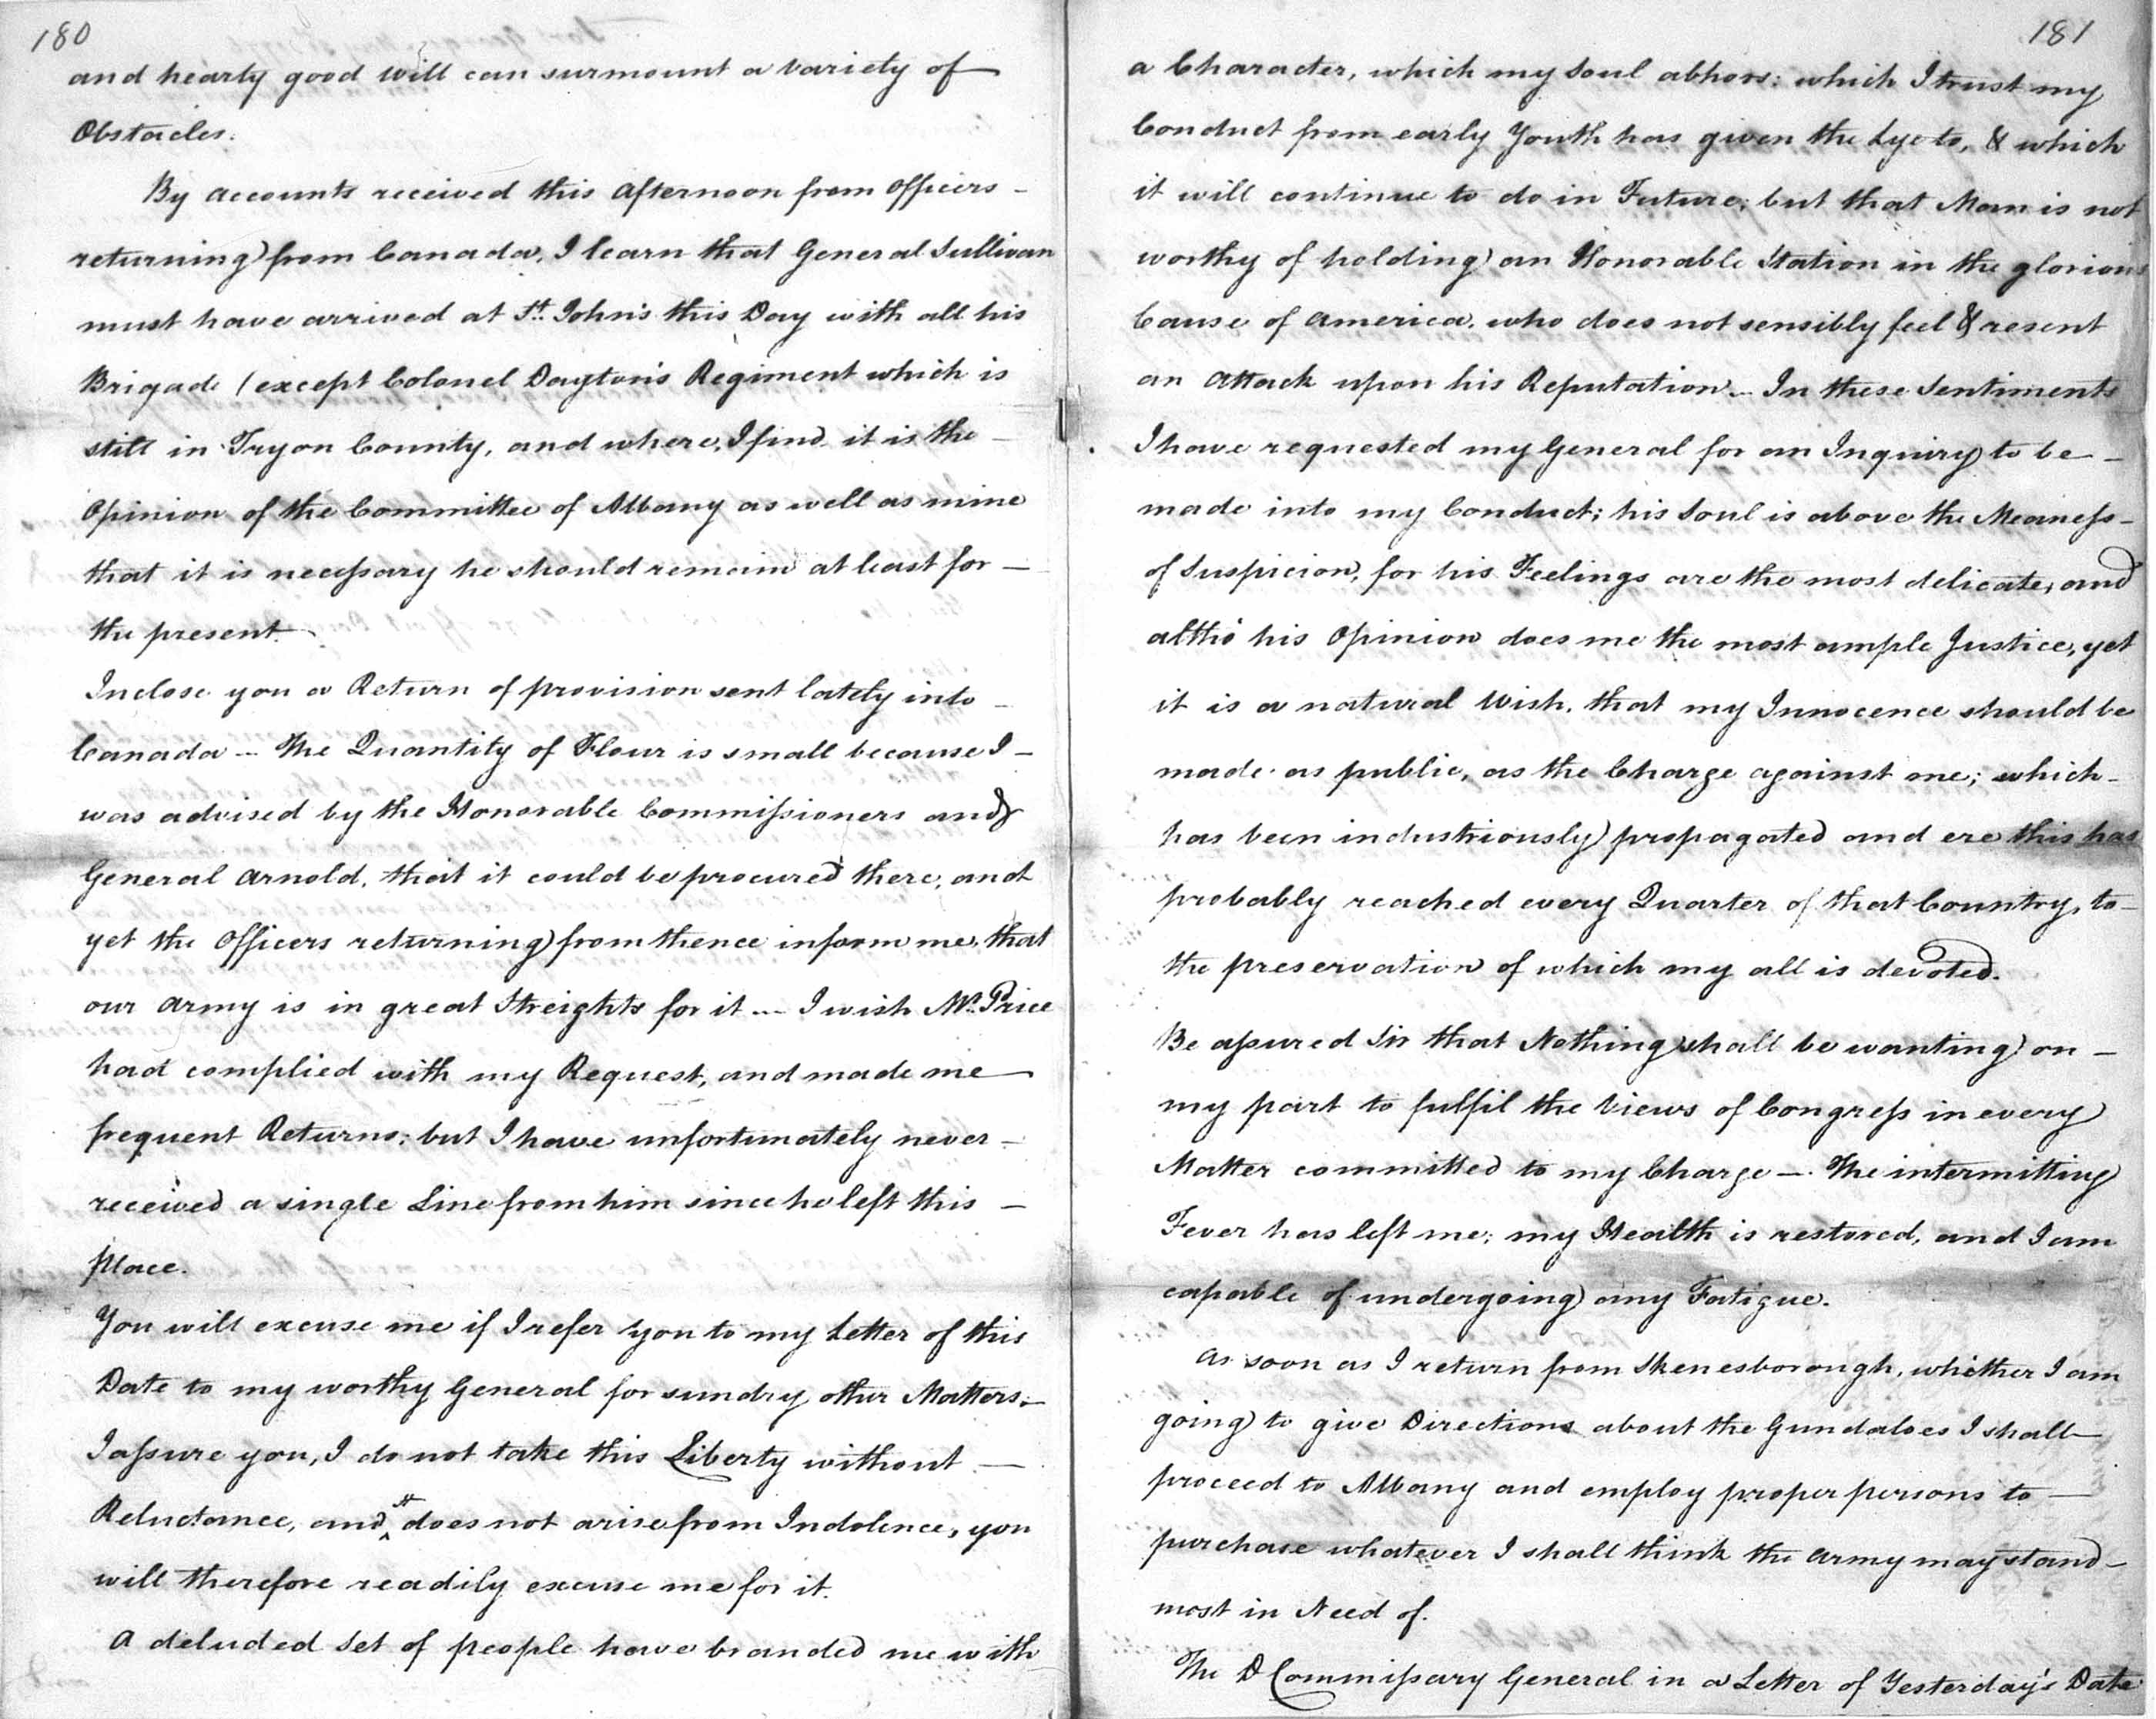 180
and hearty good will can surmount a variety of
Obstacles.
By accounts received this afternoon from officers
returning from Canada, I learn that General Sullivan
must have arrived at St. John's this Day with all his
Brigade (except Colonel Dayton's Regiment which is
still in Tryon County, and where, I find it is the
Opinion of the Committee of Albany as well as mine
that it is necessary he should remain at least for
the present.
Inclose you a Return of provision sent lately into
Canada — The Quantity of Flour is small because I
was advised by the Honorable Commissioners and
General Arnold, that it could be procured there, and
yet the Officers returning from thence inform me, that
our army is in great Streights for it — I wish Mr. Price
had complied with my Request, and made me
frequent Returns; but I have unfortunately never
received a single Line from him since he left this
place.
You will excuse me if I refer you to my Letter of this
Date to my worthy General for sundry other Matters.
I assure you, I do not take this Liberty without
Reluctance, and it does not arise from Indolence, you
will therefore readily excuse me for it.
A deluded Set of people have branded me with
181
a Character, which my Soul abhors: which I trust my
Conduct from early Youth has given the Lye to, & which
it will continue to do in Future; but that Man is not
worthy of holding an Honorable Station in the glorious
Cause of America, who does not sensibly feel & resent
an attack upon his Reputation — In these Sentiments
I have requested my General for an Inquiry to be
made into my Conduct; his Soul is above the Meaness
of Suspicion, for his Feelings are the most delicate, and
altho' his Opinion does me the most ample Justice, yet
it is a natural Wish, that my Innocence should be
made as public, as the Charge against me; which
has been industriously propagated and ere this has
probably reached every Quarter of that Country, to
the preservation of which my all is devoted.
Be assured Sir that Nothing shall be wanting on
my part to fulfil the Views of Congress in every
Matter committed to my Charge —. The intermitting
Fever has left me; my Health is restored, and I am
capable of undergoing any Fatigue.
As soon as I return from Skenesborough, whither I am
going to give Directions about the Gundaloes I shall
proceed to Albany and employ proper persons to
purchase whatever I shall think the Army may stand
most in Need of.
The D Commissary General in a Letter of Yesterday's Date